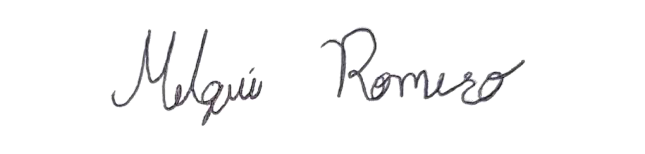 Melqui Romero